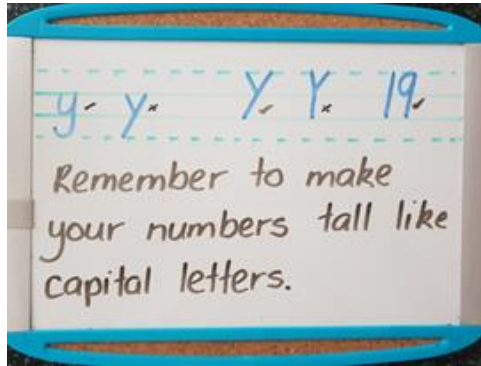 y ✓ y × Y ✓ Y × 19 ✓
Remember to make
your numbers tall like
capital letters.